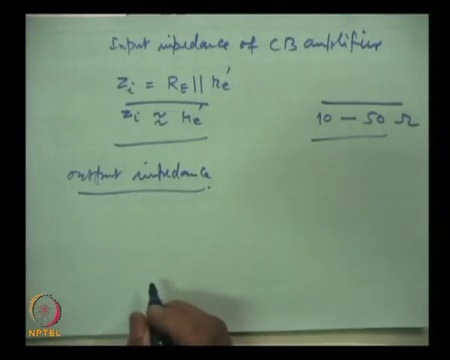 Input impedance of CB amplifier
Zi = RE || re'
Zi ≈ re'
10 — 50 Ω
output impedance.
NPTEL